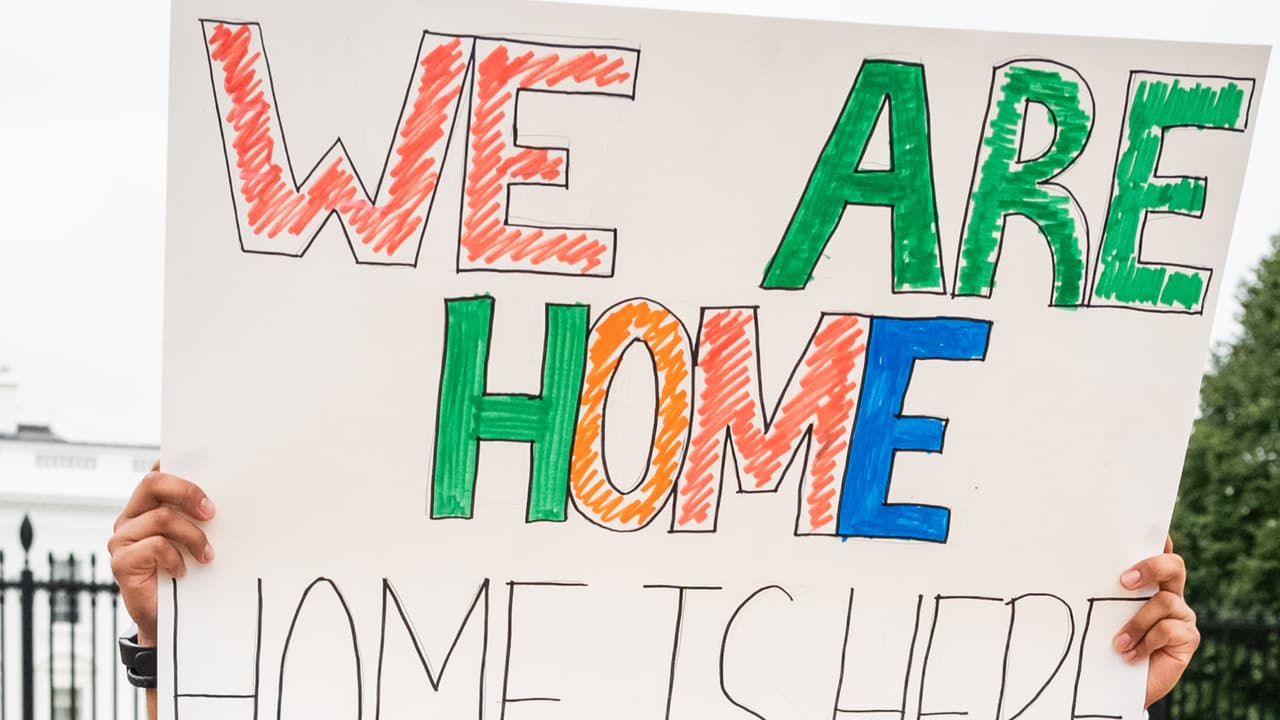 WE ARE
HOME
HOME IS HERE